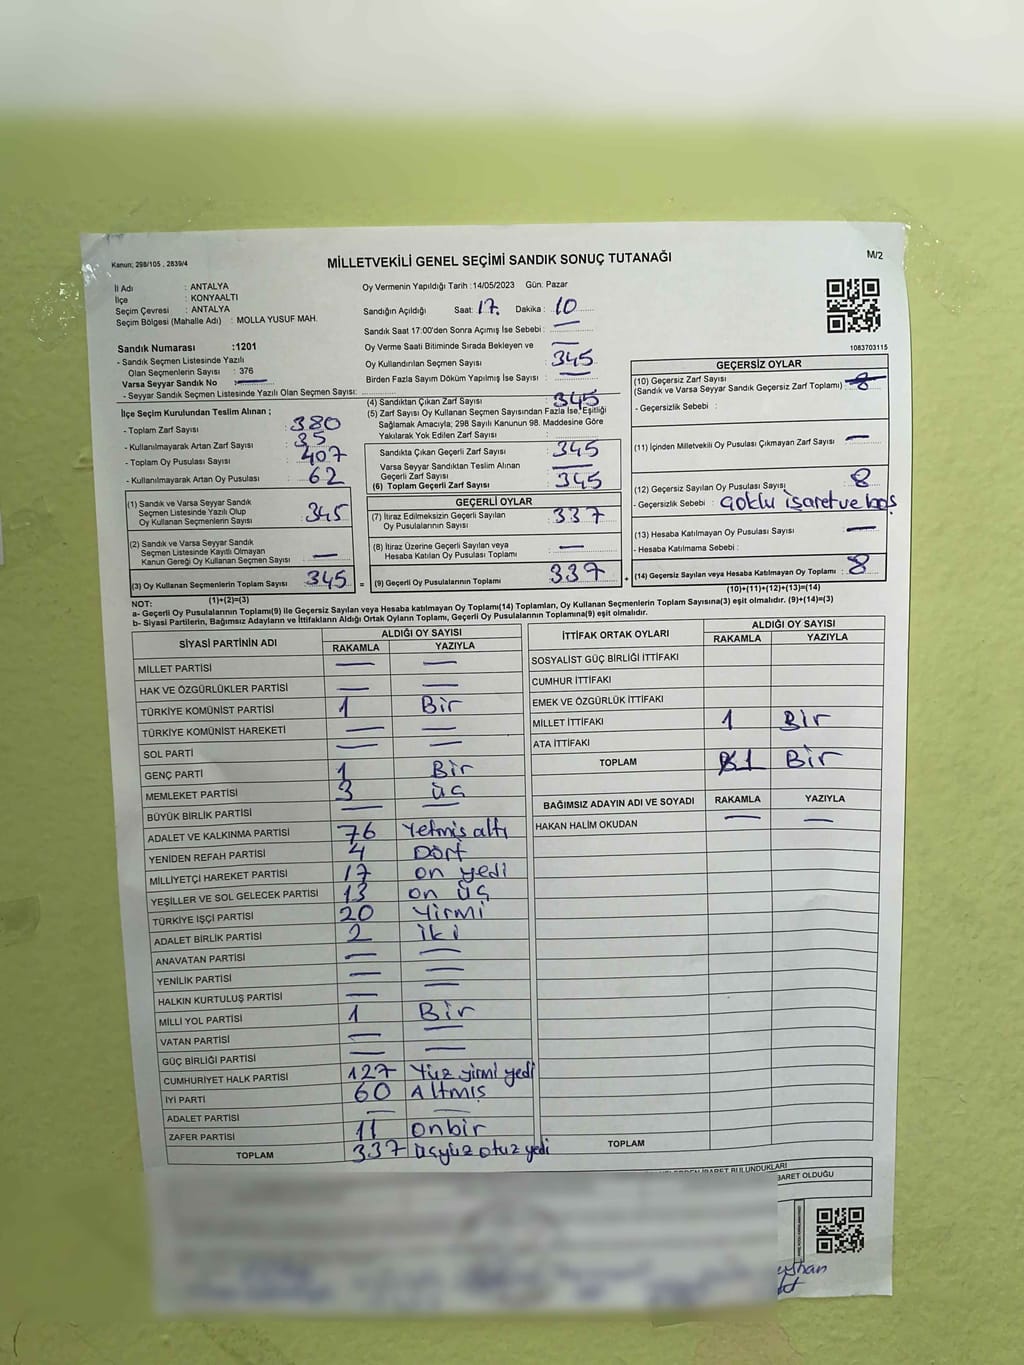 Kanun; 298/105 , 2839/4
MİLLETVEKİLİ GENEL SEÇİMİ SANDIK SONUÇ TUTANAĞI
M/2
İl Adı : ANTALYA
İlçe : KONYAALTI
Seçim Çevresi : ANTALYA
Seçim Bölgesi (Mahalle Adı) : MOLLA YUSUF MAH.
Sandık Numarası :1201
- Sandık Seçmen Listesinde Yazılı
Olan Seçmenlerin Sayısı : 376
Varsa Seyyar Sandık No : —
- Seyyar Sandık Seçmen Listesinde Yazılı Olan Seçmen Sayısı:
İlçe Seçim Kurulundan Teslim Alınan ;
- Toplam Zarf Sayısı : 380
- Kullanılmayarak Artan Zarf Sayısı : 35
- Toplam Oy Pusulası Sayısı : 407
- Kullanılmayarak Artan Oy Pusulası : 62
(1) Sandık ve Varsa Seyyar Sandık
Seçmen Listesinde Yazılı Olup
Oy Kullanan Seçmenlerin Sayısı : 345
(2) Sandık ve Varsa Seyyar Sandık
Seçmen Listesinde Kayıtlı Olmayan
Kanun Gereği Oy Kullanan Seçmen Sayısı : —
(3) Oy Kullanan Seçmenlerin Toplam Sayısı : 345 =
(1)+(2)=(3)
Oy Vermenin Yapıldığı Tarih :14/05/2023 Gün: Pazar
Sandığın Açıldığı Saat: 17. Dakika : 10
Sandık Saat 17:00'den Sonra Açılmış İse Sebebi : —
Oy Verme Saati Bitiminde Sırada Bekleyen ve —
Oy Kullandırılan Seçmen Sayısı : 345
Birden Fazla Sayım Döküm Yapılmış İse Sayısı : —
(4) Sandıktan Çıkan Zarf Sayısı : 345
(5) Zarf Sayısı Oy Kullanan Seçmen Sayısından Fazla İse, Eşitliği
Sağlamak Amacıyla; 298 Sayılı Kanunun 98. Maddesine Göre
Yakılarak Yok Edilen Zarf Sayısı :
Sandıkta Çıkan Geçerli Zarf Sayısı : 345
Varsa Seyyar Sandıktan Teslim Alınan
Geçerli Zarf Sayısı : —
(6) Toplam Geçerli Zarf Sayısı : 345
GEÇERLİ OYLAR
(7) İtiraz Edilmeksizin Geçerli Sayılan
Oy Pusulalarının Sayısı : 337
(8) İtiraz Üzerine Geçerli Sayılan veya
Hesaba Katılan Oy Pusulası Toplamı : —
(9) Geçerli Oy Pusulalarının Toplamı : 337 +
1083703115
GEÇERSİZ OYLAR
(10) Geçersiz Zarf Sayısı
(Sandık ve Varsa Seyyar Sandık Geçersiz Zarf Toplamı) :
- Geçersizlik Sebebi :
(11) İçinden Milletvekili Oy Pusulası Çıkmayan Zarf Sayısı : —
(12) Geçersiz Sayılan Oy Pusulası Sayısı : 8
- Geçersizlik Sebebi : Çoklu işaret ve boş
(13) Hesaba Katılmayan Oy Pusulası Sayısı : —
- Hesaba Katılmama Sebebi :
(14) Geçersiz Sayılan veya Hesaba Katılmayan Oy Toplamı : 8
(10)+(11)+(12)+(13)=(14)
NOT:
a- Geçerli Oy Pusulalarının Toplamı(9) ile Geçersiz Sayılan veya Hesaba katılmayan Oy Toplamı(14) Toplamları, Oy Kullanan Seçmenlerin Toplam Sayısına(3) eşit olmalıdır. (9)+(14)=(3)
b- Siyasi Partilerin, Bağımsız Adayların ve İttifakların Aldığı Ortak Oyların Toplamı, Geçerli Oy Pusulalarının Toplamına(9) eşit olmalıdır.
SİYASİ PARTİNİN ADI ALDIĞI OY SAYISI
RAKAMLA YAZIYLA
MİLLET PARTİSİ — —
HAK VE ÖZGÜRLÜKLER PARTİSİ — —
TÜRKİYE KOMÜNİST PARTİSİ 1 Bir
TÜRKİYE KOMÜNİST HAREKETİ — —
SOL PARTİ — —
GENÇ PARTİ 1 Bir
MEMLEKET PARTİSİ 3 üç
BÜYÜK BİRLİK PARTİSİ — —
ADALET VE KALKINMA PARTİSİ 76 Yetmiş altı
YENİDEN REFAH PARTİSİ 4 Dört
MİLLİYETÇİ HAREKET PARTİSİ 17 on yedi
YEŞİLLER VE SOL GELECEK PARTİSİ 13 on üç
TÜRKİYE İŞÇİ PARTİSİ 20 Yirmi
ADALET BİRLİK PARTİSİ 2 iki
ANAVATAN PARTİSİ — —
YENİLİK PARTİSİ — —
HALKIN KURTULUŞ PARTİSİ — —
MİLLİ YOL PARTİSİ 1 Bir
VATAN PARTİSİ — —
GÜÇ BİRLİĞİ PARTİSİ — —
CUMHURİYET HALK PARTİSİ 127 Yüz yirmi yedi
İYİ PARTİ 60 Altmış
ADALET PARTİSİ — —
ZAFER PARTİSİ 11 onbir
TOPLAM 337 üçyüz otuz yedi
İTTİFAK ORTAK OYLARI ALDIĞI OY SAYISI
RAKAMLA YAZIYLA
SOSYALİST GÜÇ BİRLİĞİ İTTİFAKI
CUMHUR İTTİFAKI
EMEK VE ÖZGÜRLÜK İTTİFAKI
MİLLET İTTİFAKI 1 Bir
ATA İTTİFAKI
TOPLAM 1 Bir
BAĞIMSIZ ADAYIN ADI VE SOYADI RAKAMLA YAZIYLA
HAKAN HALİM OKUDAN — —
TOPLAM
BULUNDUKLARI
OLDUĞU